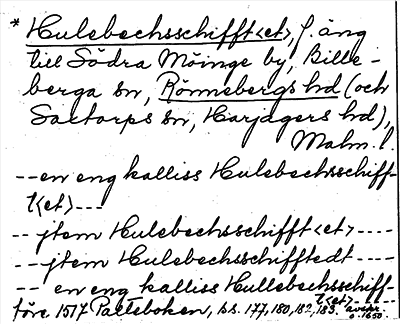 * Hulebechsschifft<et>, f. äng
till Södra Möinge by, Bille-
berga sn, Rönnebergs hd (och
Saxtorps sn, Harjagers hd),
Malm. l.
--- en eng kalliss Hulebechsschiff-
t<et> ---
-- jtem Hulebechsschifft<et> ----
--- jtem Hulebechsschifftedt ----
-- en eng kalliss Hullebechsschiff-
t<et> ----
före 1517 Palteboken, ss. 177, 180, 182, 183. avskr.
c. 1650